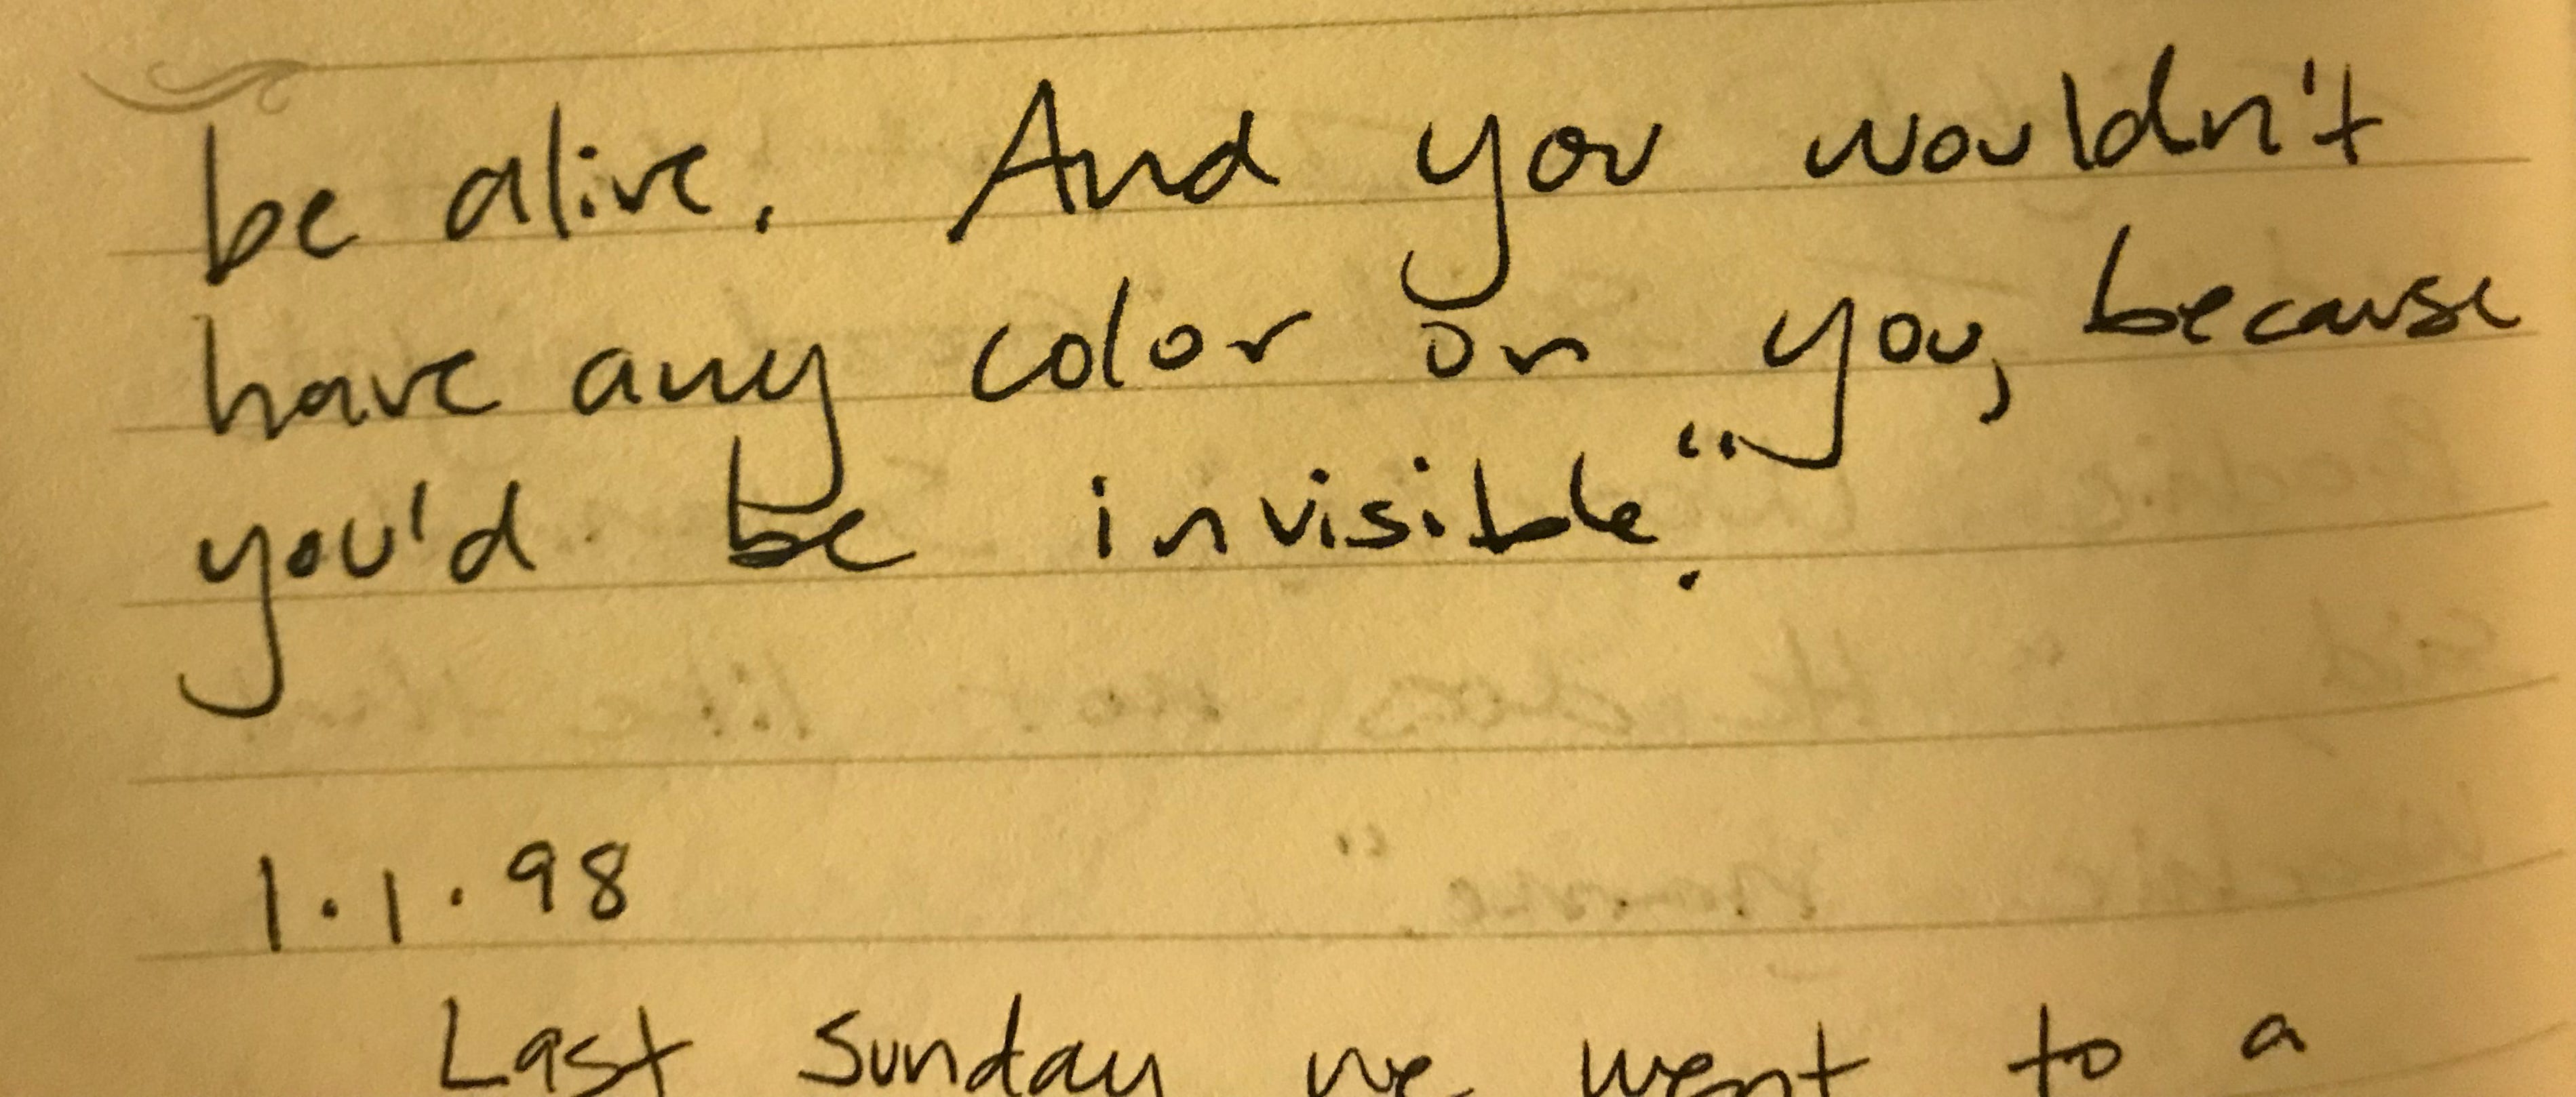 be alive. And you wouldn't
have any color on you, because
you'd be invisible."
1.1.98
Last Sunday we went to a